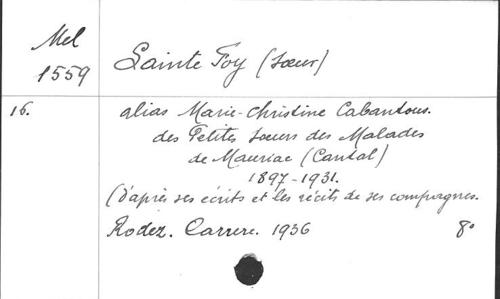 Mel
1559
Sainte Foy (Sœur)
16.
alias Marie-Christine Cabantous.
des Petites Sœurs des Malades
de Mauriac (Cantal)
1897-1931.
(D'après ses écrits et les récits de ses compagnes.
Rodez. Carrere. 1936
8º